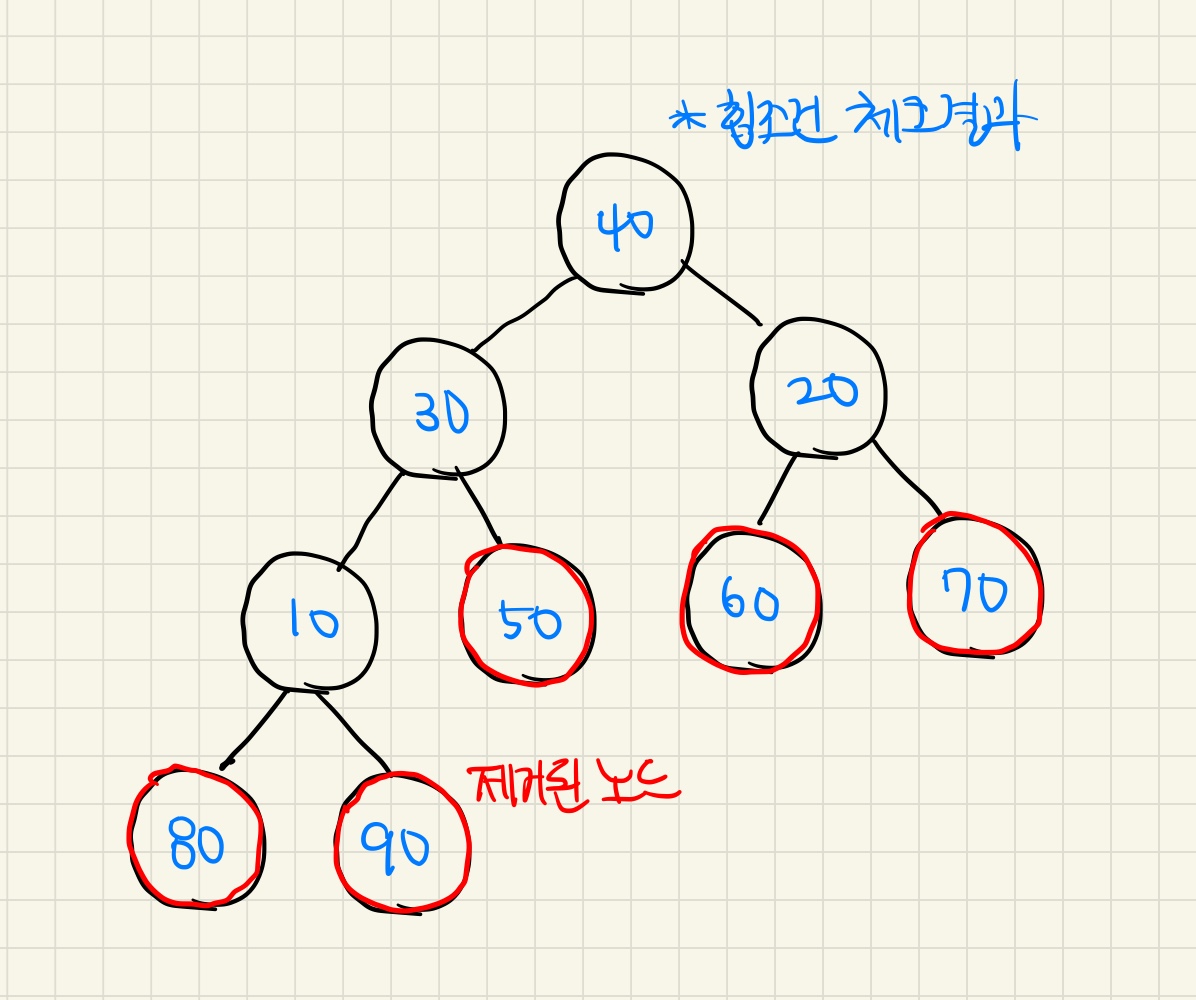 * 힙조건 체크결과
40
30
20
10
50
60
70
80
90
제거된 노드